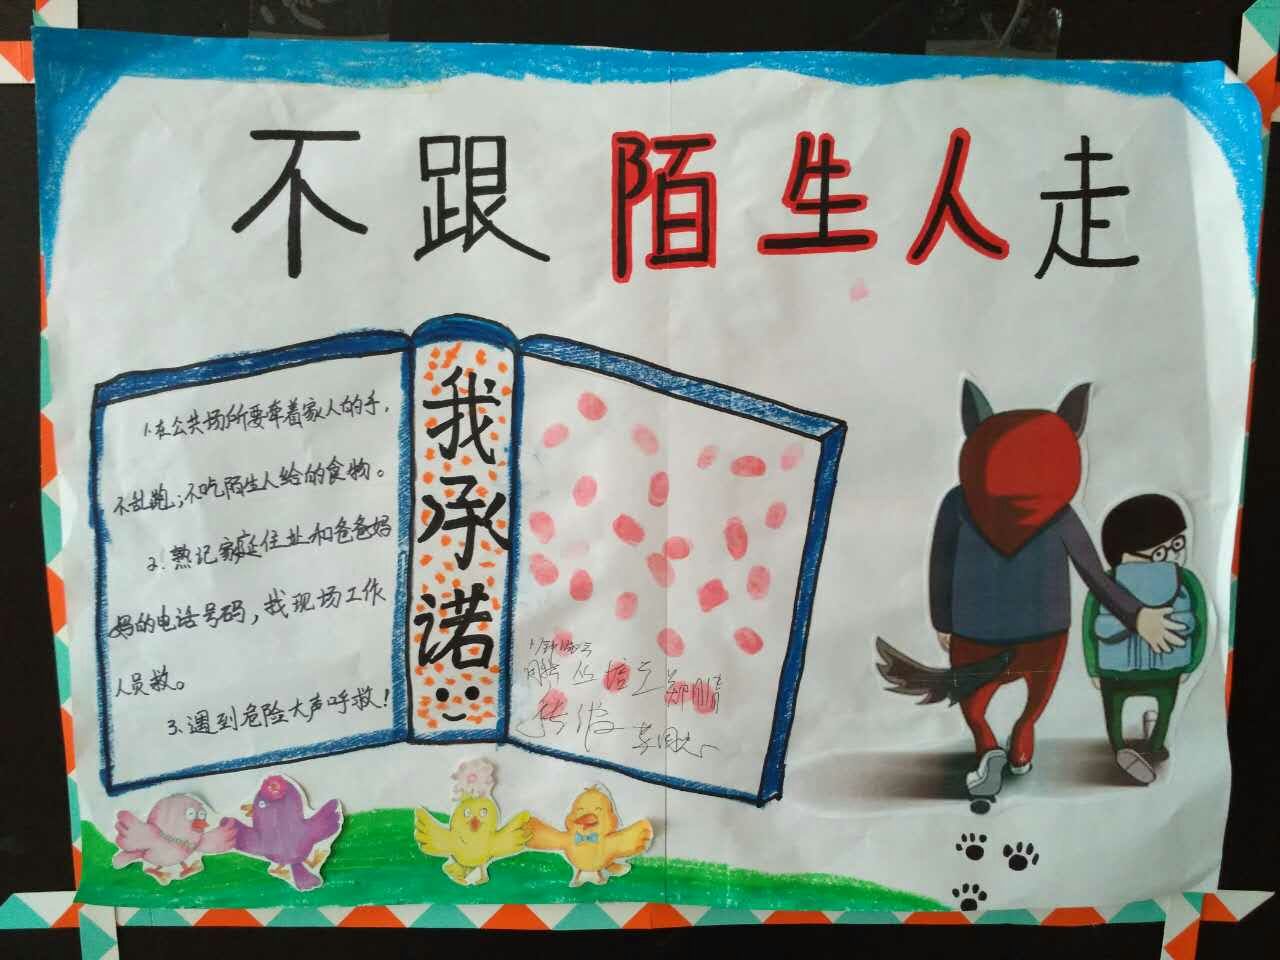 不跟陌生人走
1.在公共场所要牵着家人的手，
不乱跑；不吃陌生人给的食物。
2.熟记家庭住址和爸爸妈
妈的电话号码，找现场工作
人员救。
3.遇到危险大声呼救！
我承诺